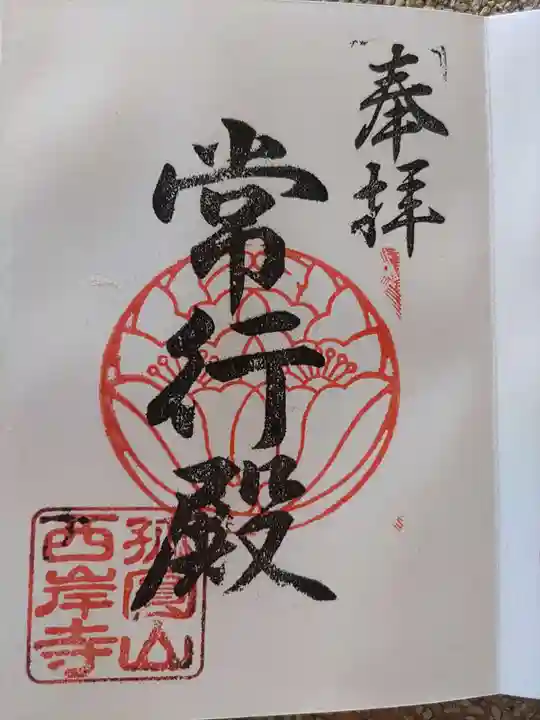 奉拝
常行殿
孤圓山
西岸寺